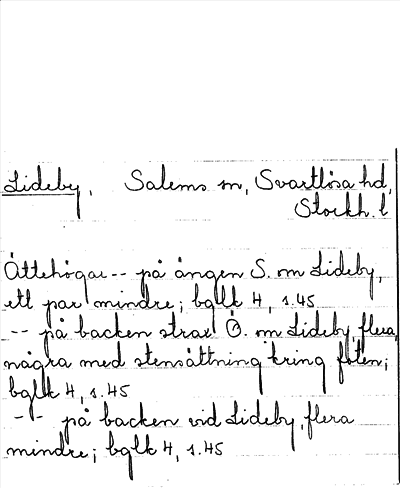 Lideby, Salems sn, Svartlösa hd,
Stockh. l
Ättehögar -- på ängen S. om Lideby,
ett par mindre; bglk 4, s.45
-- på backen strax Ö. om Lideby, flera,
några med stensättning kring foten;
bglk 4, s.45
-- på backen vid Lideby, flera
mindre; bglk 4, s.45